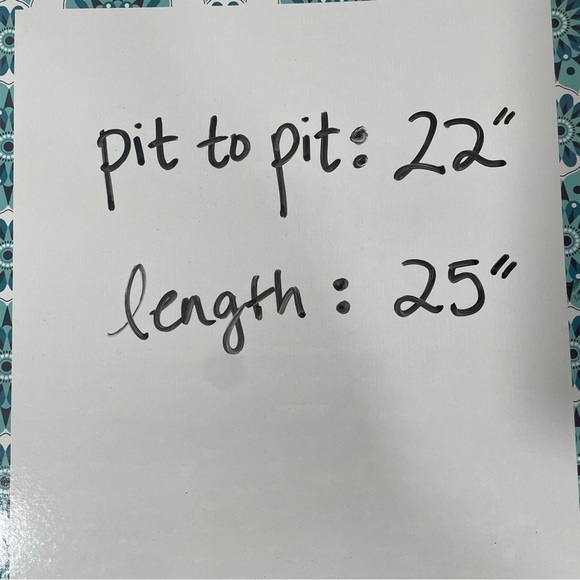 pit to pit: 22"
length: 25"